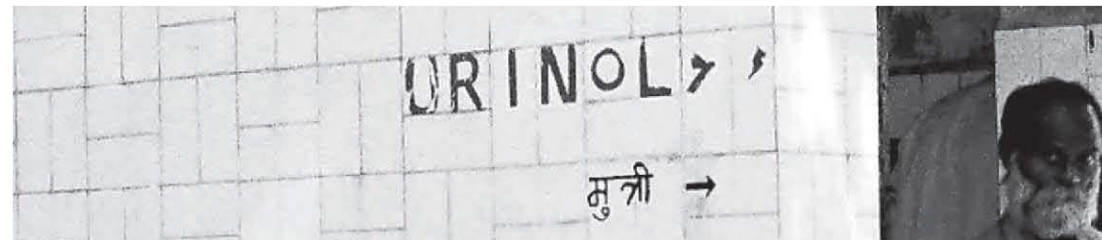 URINOL >
मुत्री →